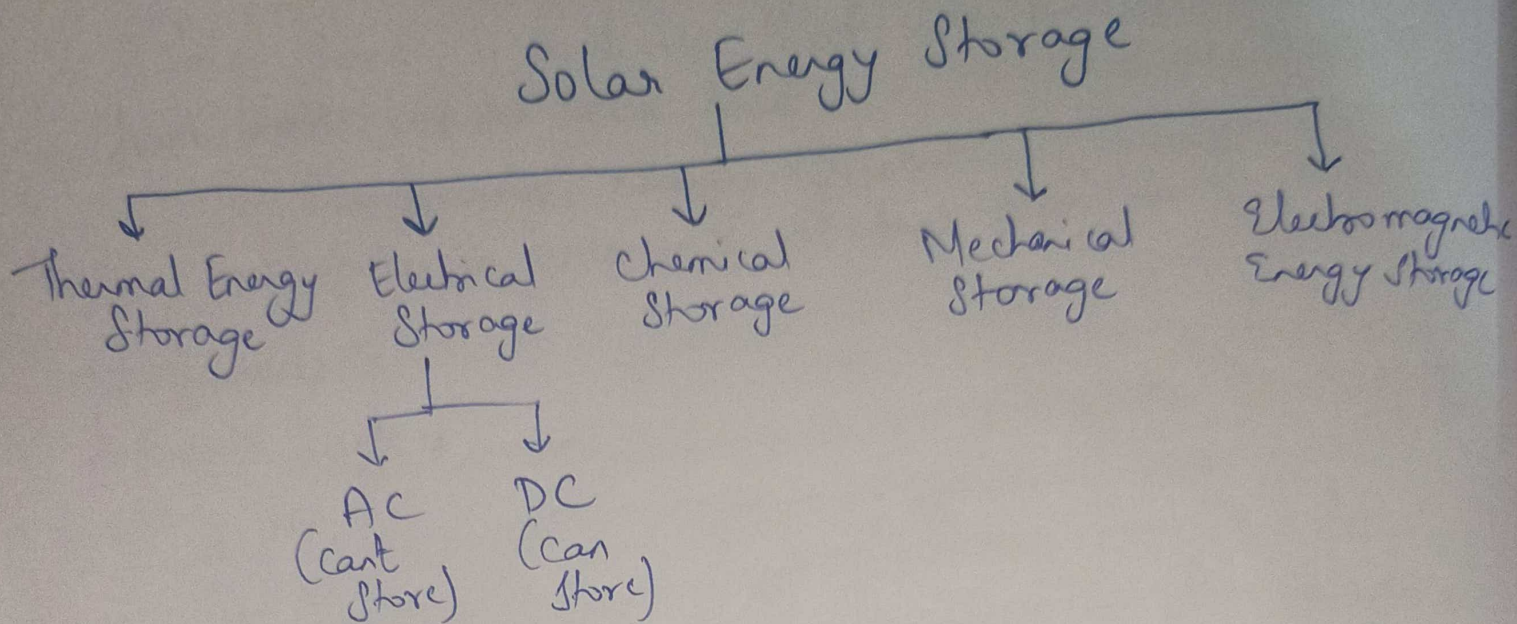 Solar Energy Storage
Thermal Energy
Storage
Electrical
Storage
Chemical
Storage
Mechanical
Storage
Electromagnetic
Energy Storage
AC
(Cant
Store)
DC
(Can
Store)